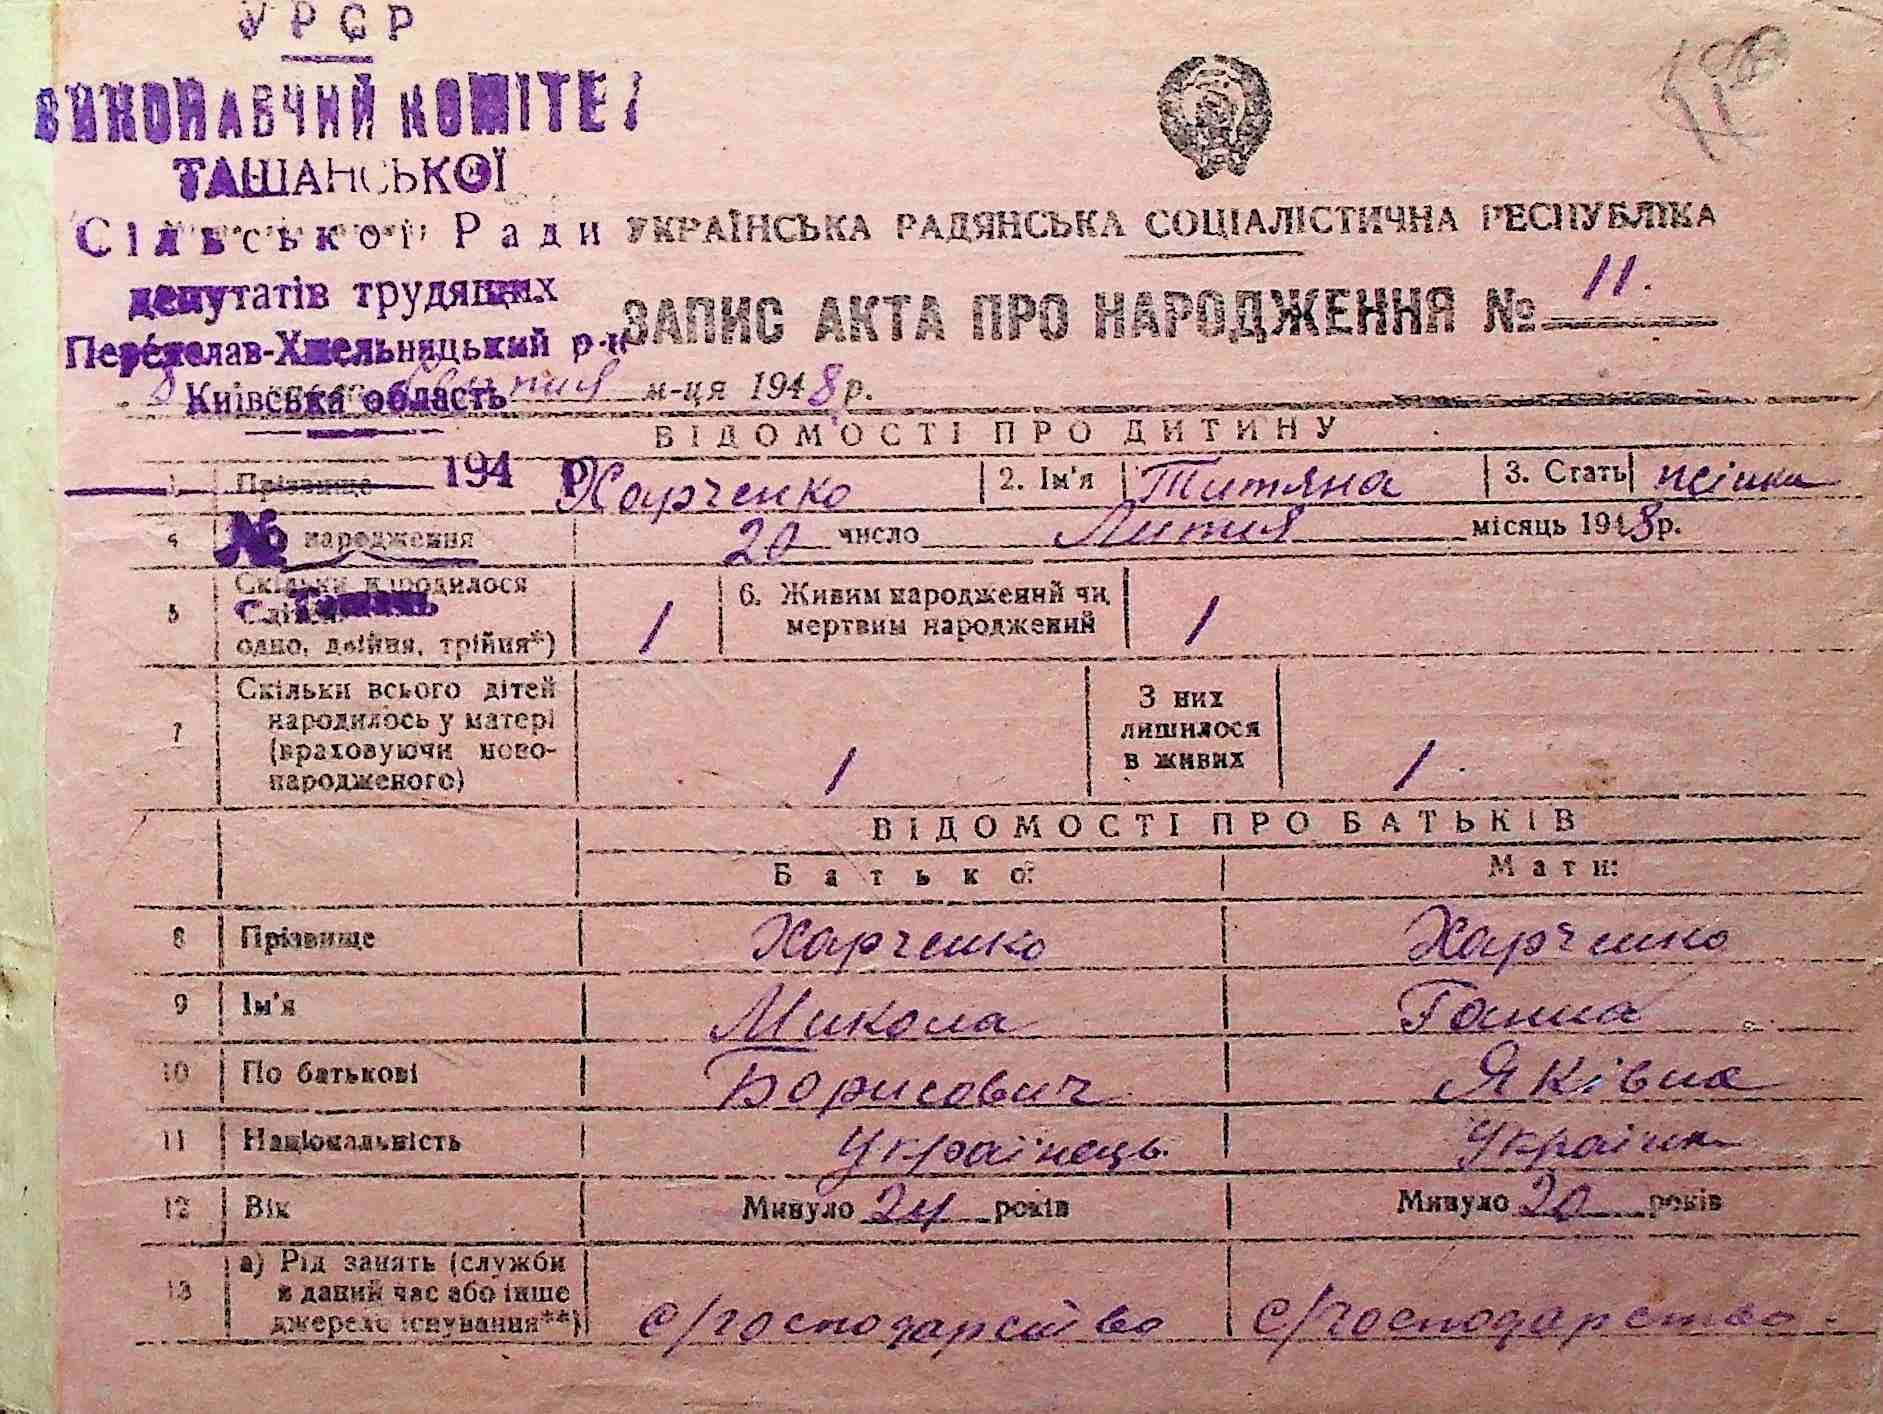 УРСР
ВИКОНАВЧИЙ КОМІТЕТ
ТАШАНСЬКОЇ
Сільської Ради
депутатів трудящих
Переяслав-Хмельницький р-н
Київська область
194 р.
№
с. Ташань
УКРАЇНСЬКА РАДЯНСЬКА СОЦІАЛІСТИЧНА РЕСПУБЛІКА
ЗАПИС АКТА ПРО НАРОДЖЕННЯ № 11.
8 м-ця 1948 р.
ВІДОМОСТІ ПРО ДИТИНУ
1 Прізвище Харченко 2. Ім'я Титяна 3. Стать жіноча
4 народження 20 число Лютня місяць 1948 р.
5 Скільки народилося
одно, двійня, трійня*) 1 6. Живим народжений чи мертвим народжений 1
7 Скільки всього дітей
народилось у матері
(враховуючи ново-
народженого) 1 З них лишилося в живих 1.
ВІДОМОСТІ ПРО БАТЬКІВ
Батько: Мати:
8 Прізвище Харченко Харченко
9 Ім'я Микола Ганна
10 По батькові Борисович Яківна
11 Національність Українець Українк
12 Вік Минуло 24 років Минуло 20 років
13 а) Рід занять (служби
в даний час або інше
джерело існування**) с/господарство с/господарство.